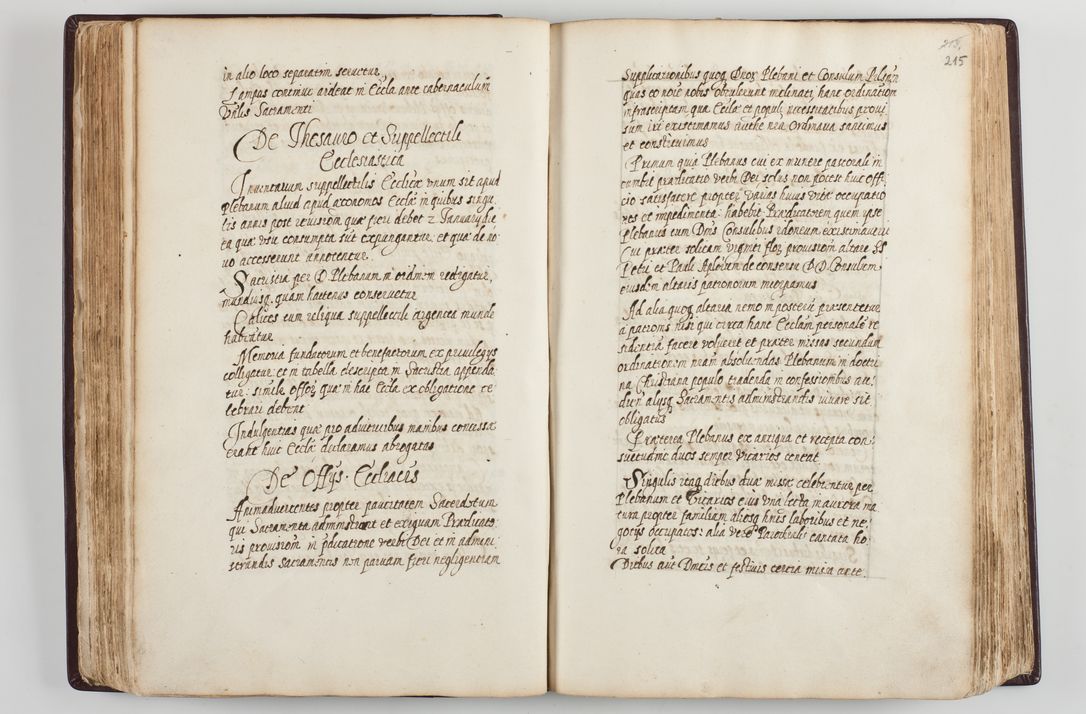 in alio loco separatim servetur
Lampas continue ardeat in Eccla ante tabernaculum
Vnlis Sacramenti
De Thesauro et Suppellectili
Ecclesiastica
Inventarium suppellectilis Eccliæ vnum sit apud
plebanum aliud apud æconomos Ecclæ in quibus singu
lis annis post revisiom quæ fieri debet 2 Ianuary die
ea quæ vsu consumpta sūt expungantur et quæ de no
uo accesserunt annotentur.
Sacristia per D. Plebanum in ordinem redigatur,
mundiusq. quam hactenus conservetur
Calices cum reliqua suppellectili argentea munde
habeātur
Memoria fundatorum et benefactorum ex privilegys
colligatur et in tabella descripta in Sacristia appenda
tur: simile offior quæ in hac Eccla ex obligatione ce
lebrari debent
Indulgentias quæ pro adiutricibus manibus concessæ
erant huic Ecclæ declaramus abrogatas
De Offys. Eccliacis
Animadvertentes propter paucitatem Sacerdotum
qui Sacramenta administrant et exiguam Prædicato
ris provisiom in p̄dicatione verbi Dei et in admini
strandis sacramentis non parvam fieri negligentiam
215,
215
Supplicationibus quoq Dnor Plebani et Consulum
quas eo noie nobis obtulerunt inclinati hanc ordinatiom
infrascriptam qua Ecclæ et populi necessitatibus provi
sum iri existimamus aūthe nrā Ordinaria sancimus
et constituimus
Primum quia Plebanus cui ex munere pastorali in
cumbit prædicatio verbi Dei solus non potest huic offi
cio satisfacere propter varias huius vitæ occupatio
nes et impedimenta: habebit Prædicatorem quem ipse
Plebanus cum Dnis Consulibus idoneum existimaverit
Cui præter solitam viginti flor provisiom altare SS
Petri et Pauli Aplorum de consensu DD Consulum
eiusdem altaris patronorum incorpamus
Ad alia quoq altaria nemo in posterū præsentetur
a patronis nisi qui circa hanc Eccliam personalē re
sidentiā facere voluerit et præter missas secundum
ordinationem nram absolvendas Plebanum in doctri
na Christiana populo tradenda in confessionibus au
dien alysq. Sacramentis administrandis iuvare sit
obligatus
Præterea Plebanus ex antiqua et recepta con
suetudine duos semper Vicarios teneat
Singulis itaq diebus duæ missæ celebrentur per
Plebanum et Vicarios eius vna lecta in aurora ma
tura propter familiam aliosq hnies laboribus et ne
gotys occupatos: alia vero Parochialis cantata ho
ra solita
Diebus aut Dnicis et festivis certa missa ante